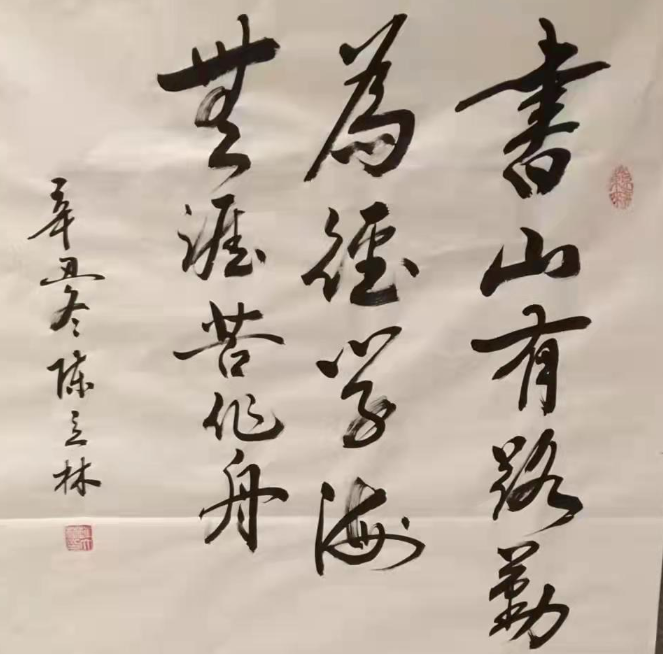 書山有路勤
為徑学海
無涯苦作舟
辛丑冬陈立林